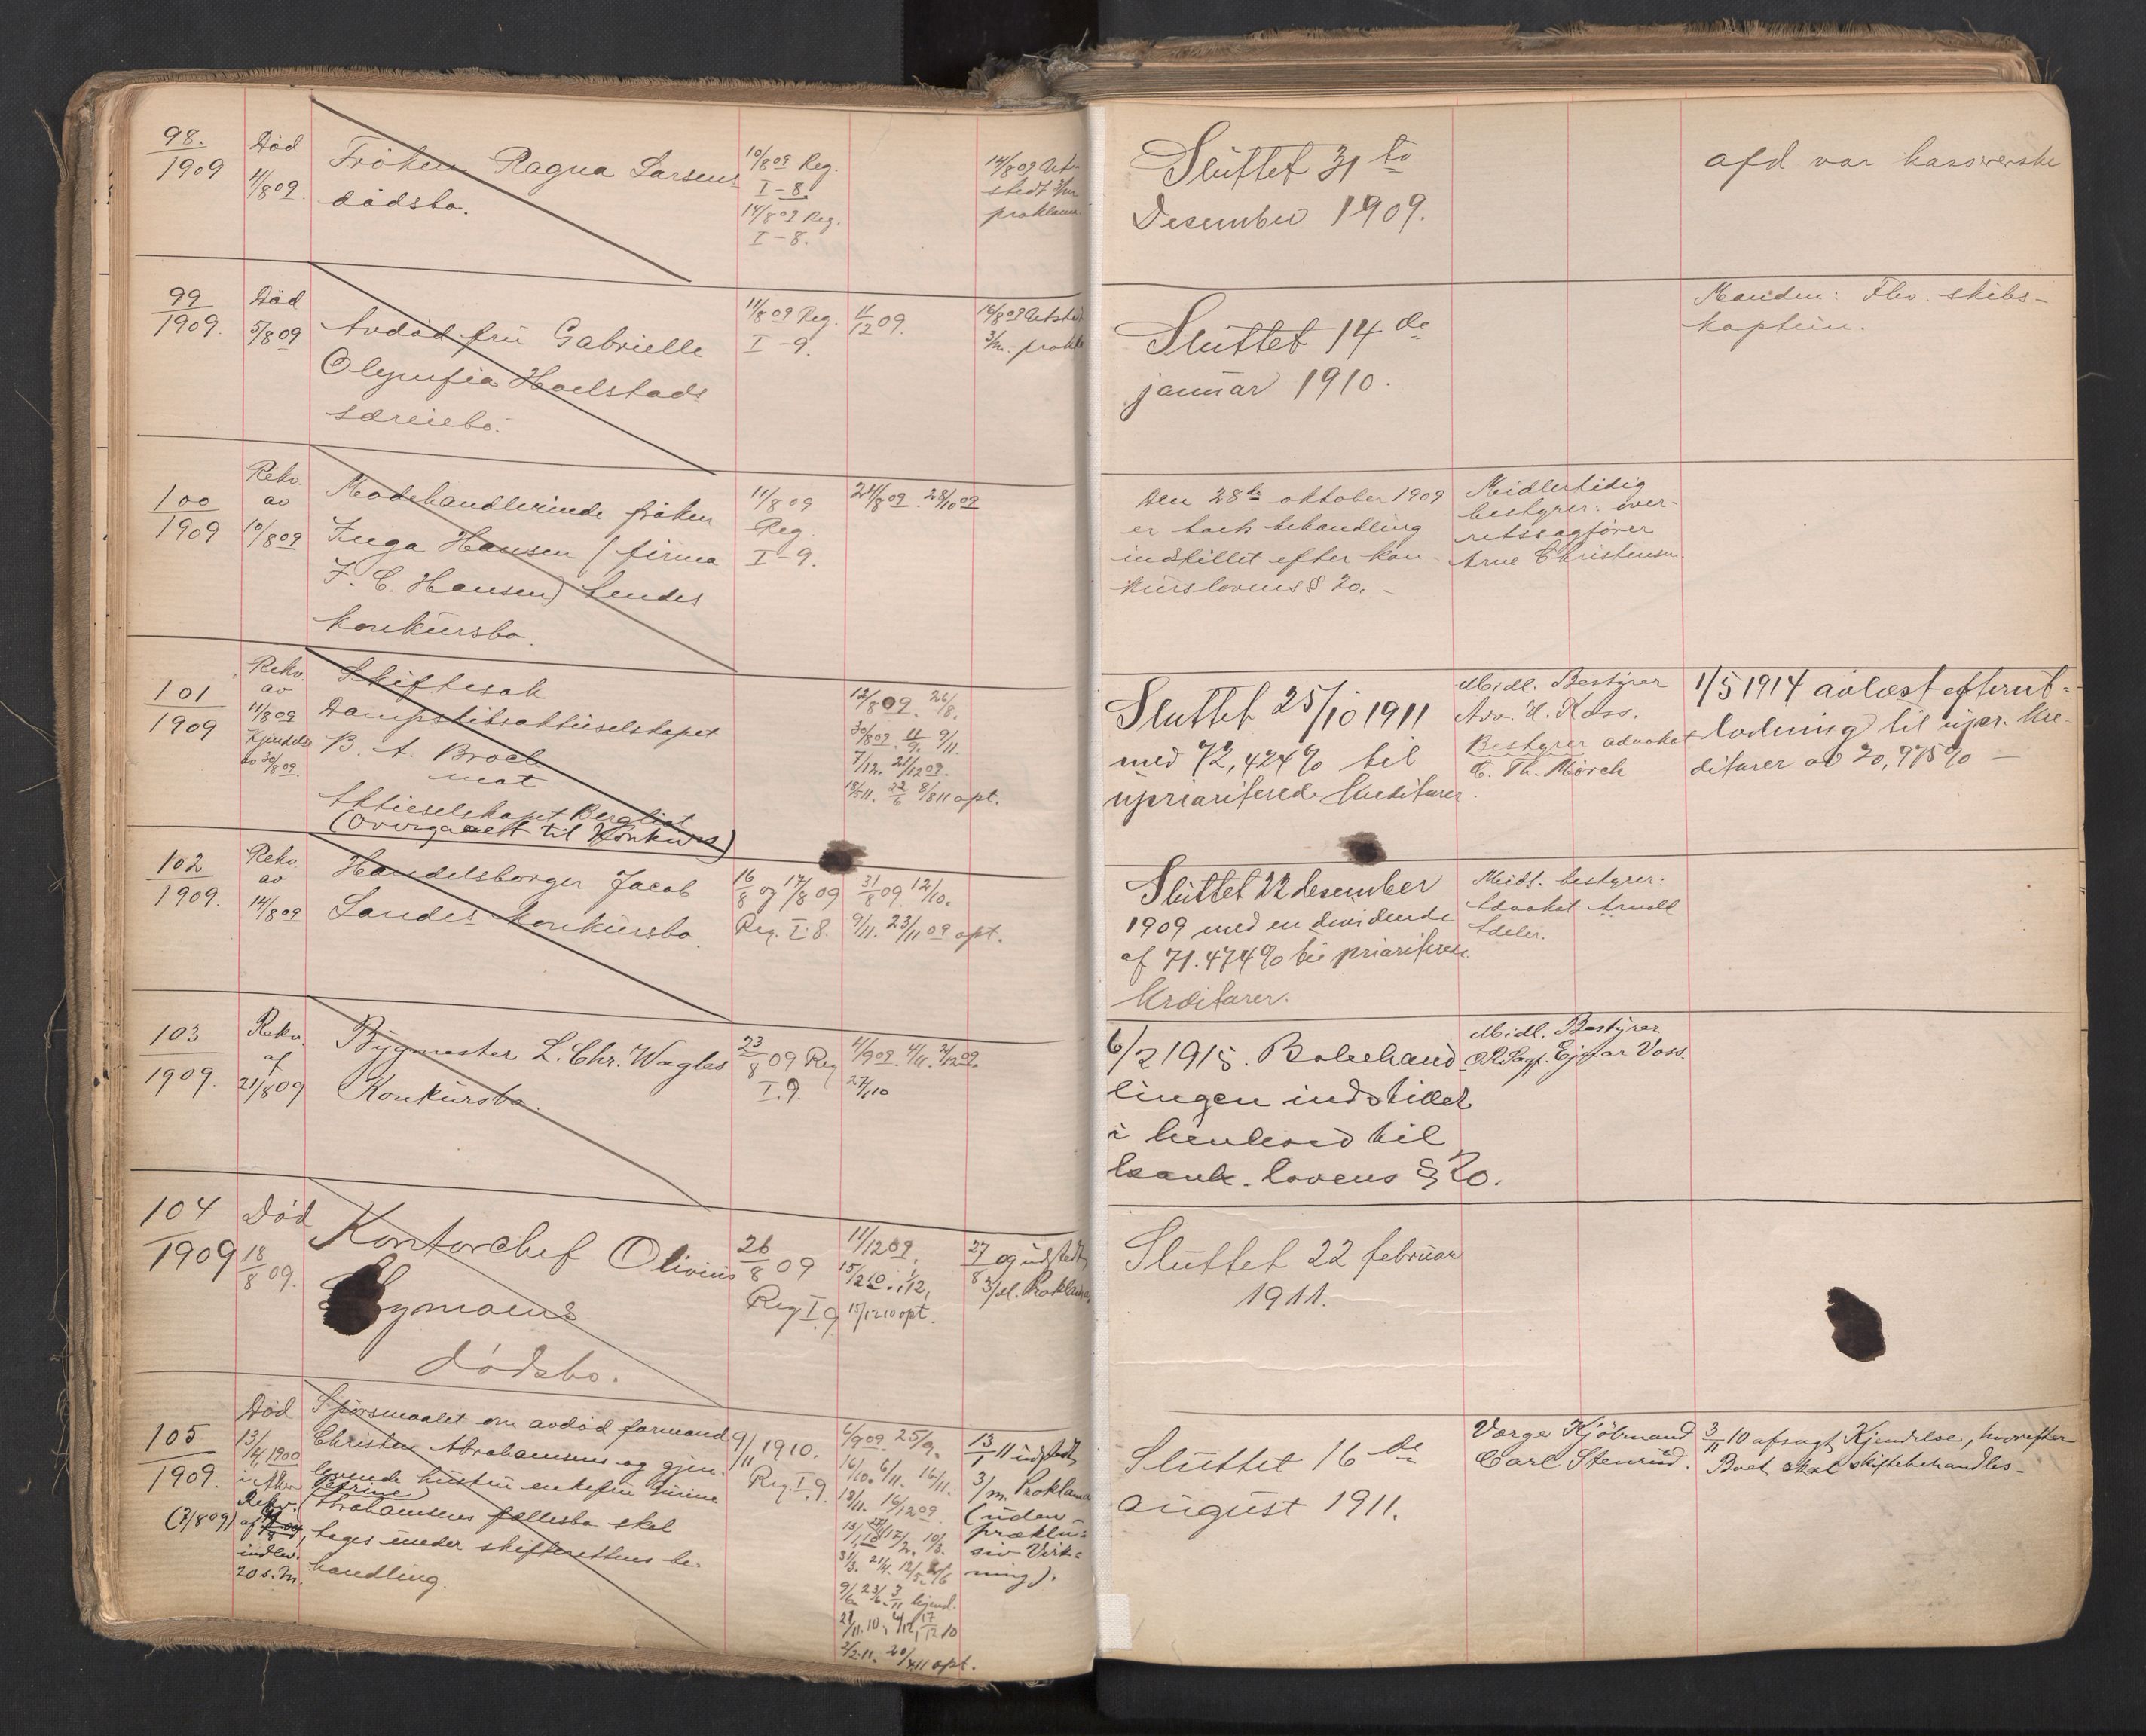 98.
1909
Död
4/8 09.
Fröken Ragna Larsens
dödsbo.
10/8 09 Reg.
I-8.
14/8 09 Reg.
I-8.
14/8 09 Ut-
stedt 3/m
proklam.
Sluttet 31 te
Desember 1909.
afd var kassererske
99
1909.
Död
5/8 09
Avdöd fru Gabrielle
Olymfia Hoelstads
særeiebo.
11/8 09 Reg.
I-9.
11/12 09.
14/8 09 Utsted
3/m. prokla
Sluttet 14 de
januar 1910.
Manden: Fhv. skibs-
kaptein.
100
1909
Rekv.
av
10/8 09
Modehandlerinde fröken
Inga Hansen (firma
I. C. Hansen) Lendes
konkursbo.
11/8 09
Reg.
I-9.
24/8 09. 28/10 09
Den 28de oktober 1909
er boets behandling
indstillet efter kon-
kurslovens § 20. -
Midlertidig
bestyrer: over-
retssagförer
Arne Christensen.
101
1909
Rekv.
av
11/8 09
Kjendelse
av 30/8 09.
Skiftesak
Dampskibsaktieselskapet
B. A. Broch
mot
Aktieselskapet Bergliot
(Overgaaet til Konkurs)
12/8 09. 26/8.
30/8 09. 11/9. 9/11.
7/12. 21/12 09.
18/5 11. 22/6 8/8 11 opt.
Sluttet 25/10 1911
med 72,424% til
upriariterede Kreditorer.
Midl. Bestyrer
Adv. H. Kass.
Bestyrer advokat
C. Th. Mörch
1/5 1914 avlæst efterut-
lodning til upr. Kre-
ditorer av 20,975% -
102
1909.
Rekv.
av
14/8 09
Handelsborger Jacob
Landes konkursbo.
16/8 og 17/8 09
Reg. I. 8.
31/8 09. 12/10.
9/11. 23/11 09 opt.
Sluttet 22 desember
1909 med en dividende
af 71.474% til prioriterede
Kreditorer.
Midl. bestyrer:
Advokat Arnold
Adeler.
103
1909.
Rekv.
af
21/8 09
Bygmester L. Chr. Wagles
Konkursbo.
23/8 09 Reg
I. 9.
4/9 09. 4/11. 2/12 09.
27/1 10
6/2 1915. Bobehand-
lingen indstillet
i henhold til
konk. lovens § 20.
Midl. Bestyrer
ORSagf. Ejnar Voss.
104
1909
Död
18/8 09.
Kontorchef Olivius
Nymoens
dödsbo.
26/8 09
Reg I. 9
11/12 09,
15/2 10. 1/12,
15/12 10 opt.
27/8 09 udstedt
3/M. Proklama
Sluttet 22 februar
1911.
105
1909.
(7/8 09)
Död
13/4 1900
Rekv.
af
indlev.
20 s. M.
Spörsmaalet om avdöd formand
Christen Abrahamsens og gjen-
levende hustru enkefru Gurine
(Petrine)
Abrahamsens fællesbo skal
tages under skifterettens be-
handling.
9/11 1910.
Reg. I. 9.
6/9 09. 25/9.
16/10. 6/11. 16/11.
18/11. 16/12 09.
31/3. 21/4. 12/5.
9/6 23/6. 3/11 kjend.
21/11. 10. 17/12 10
2/2 11. 20/4 11 opt.
13/1 11 udstedt
3/m. Proklama
(uden
præklu-
siv Virk-
ning).
Sluttet 16 de
august 1911.
Værge Kjöbmand
Carl Stenrud.
3/11 10 afsagt Kjendelse, hvorefter
Boet skal skiftebehandles.